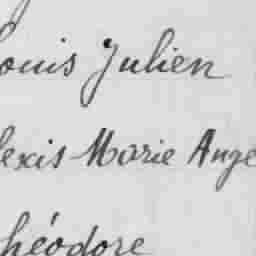 ouis Julien
lexis Marie Ange
héodore